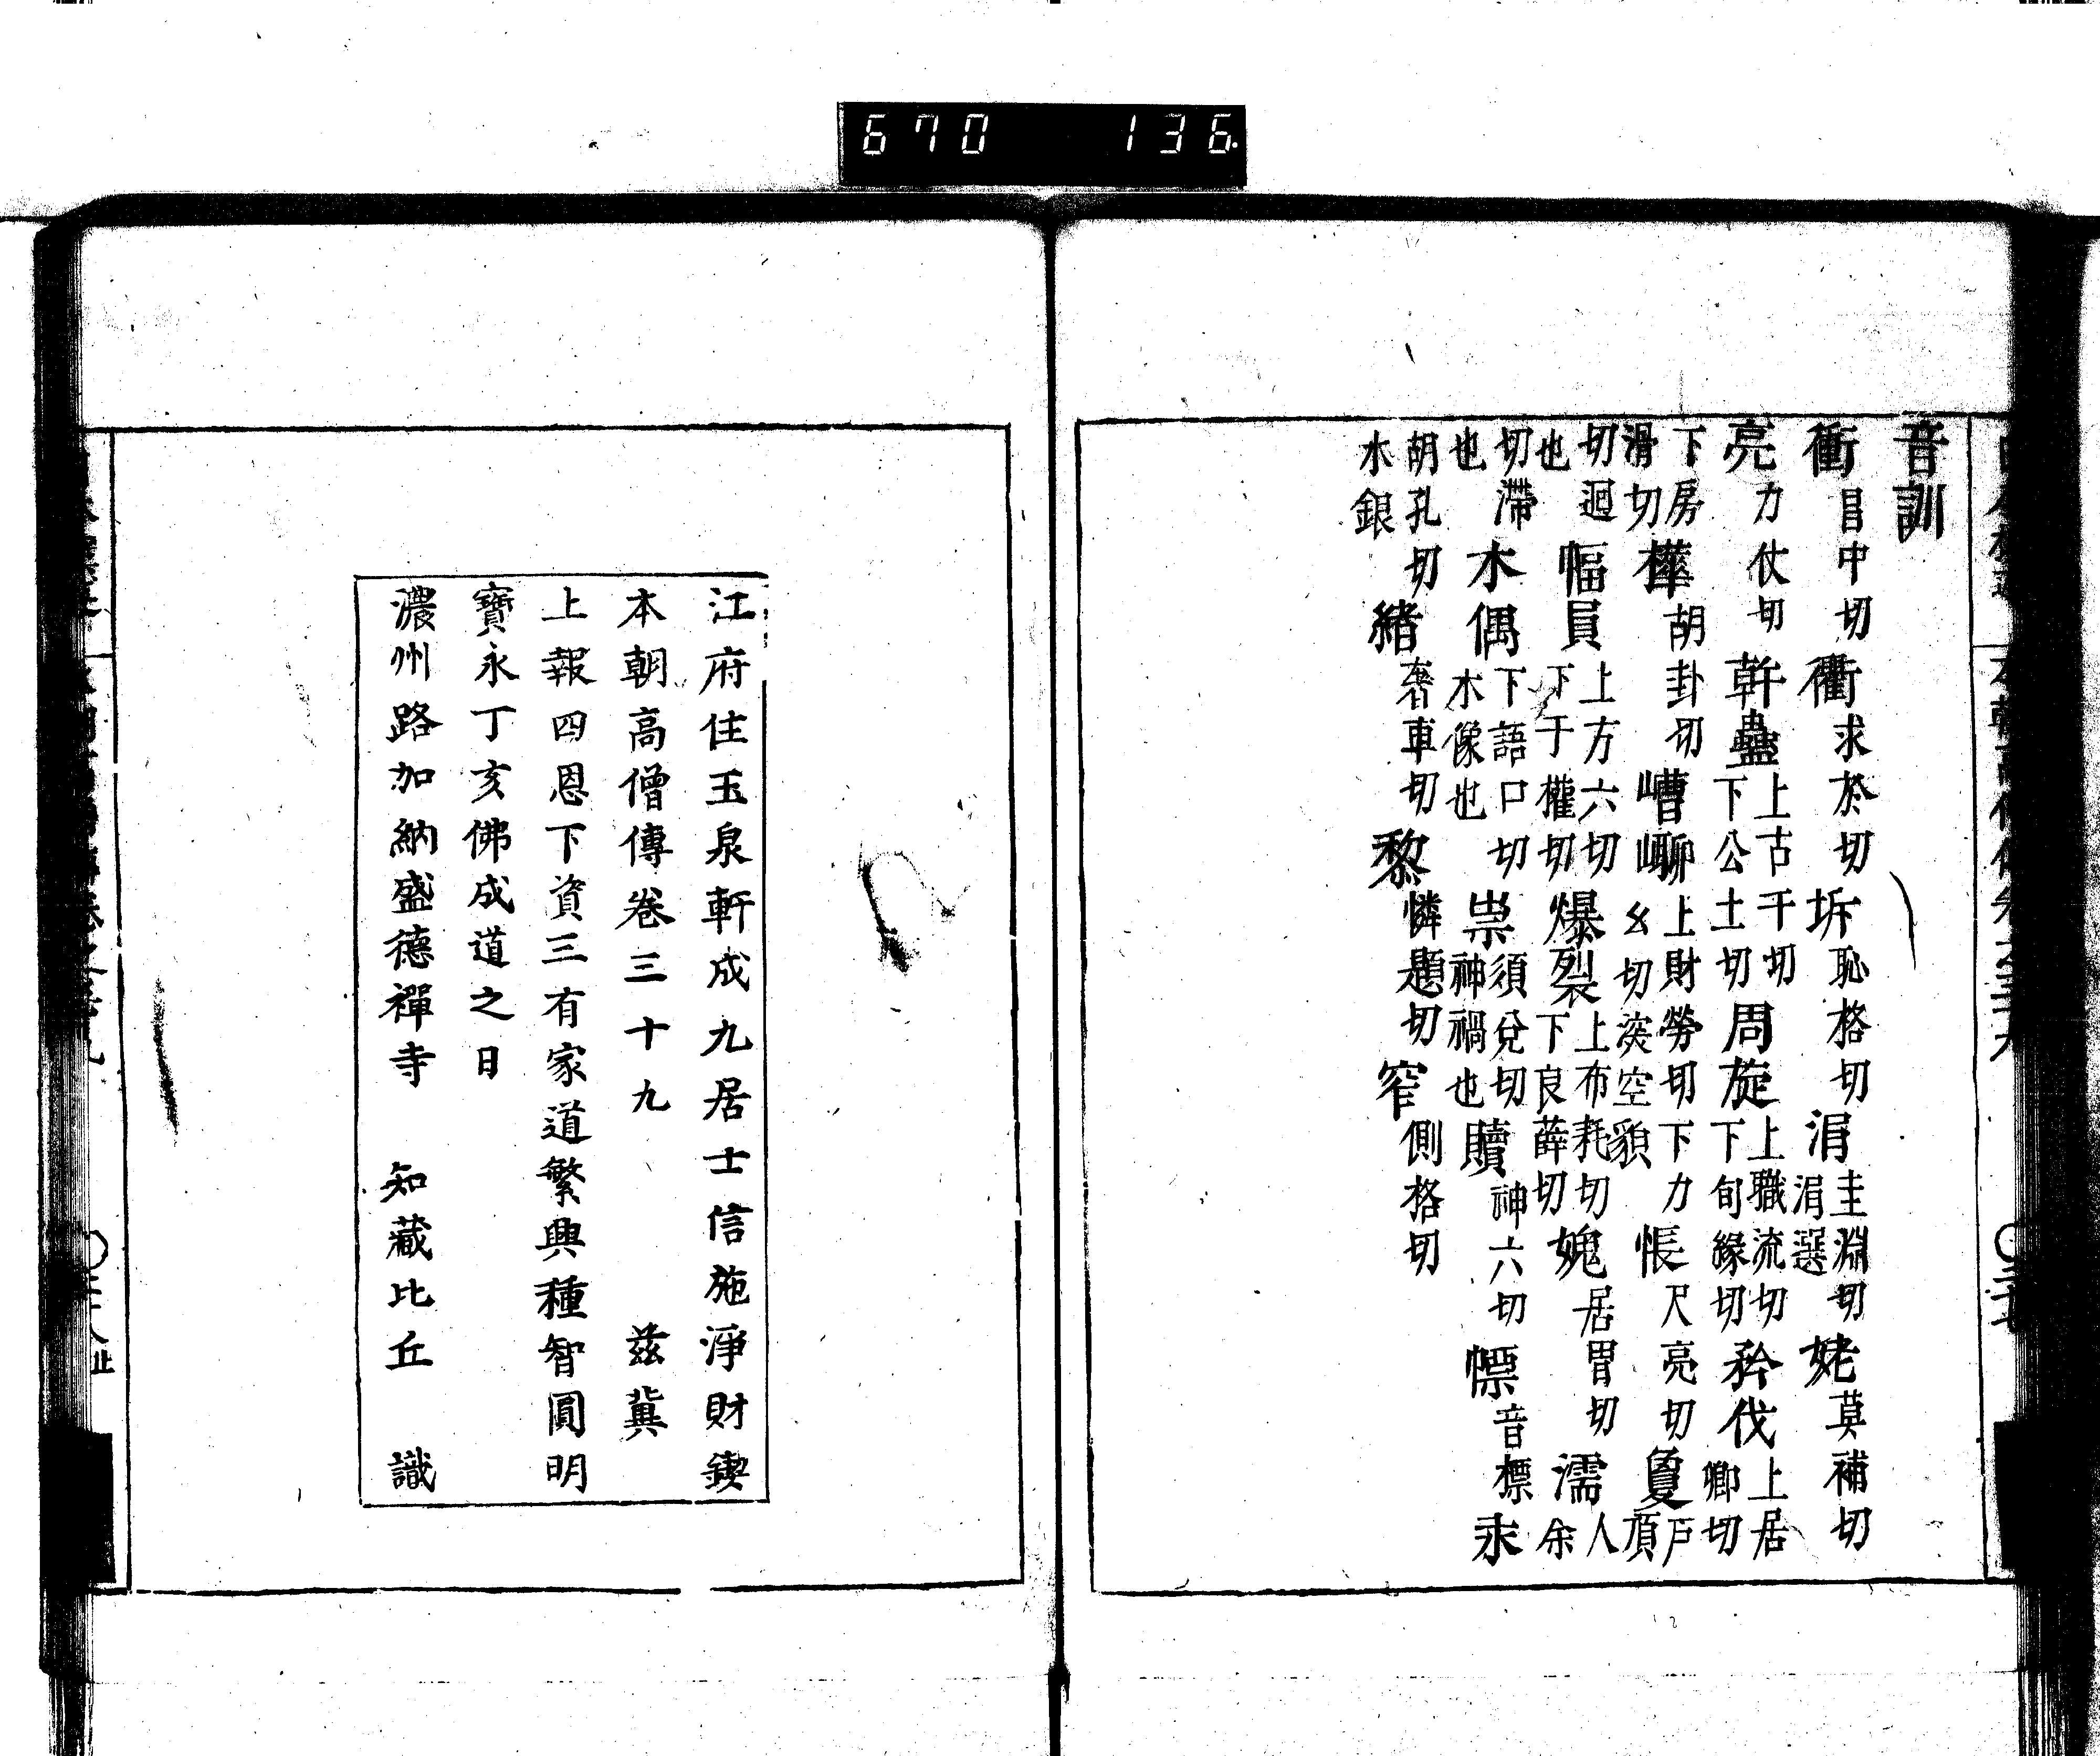 670 136
音訓
衝昌中切衢求於切坼恥格切涓圭淵切涓選姥莫補切
亮力仗切幹蠱上古干切下公土切周旋上職流切下旬緣切矜伐上居卿切
下房滑切樺胡卦切嶆嵧上財勞切下力幺切深空貌悵尺亮切敻戶頂
切迥也幅員上方六切下于權切爆裂上布耗切下良薛切媿居胃切濡人余
切滯也木偶下語口切木像也祟須兌切神禍也贖神六切幖音標汞
胡孔切水銀緒奢車切黎憐題切窄側格切
江府住玉泉軒成九居士信施淨財鍥
本朝高僧傳卷三十九 茲冀
上報四恩下資三有家道繁興種智圓明
寶永丁亥佛成道之日
濃州路加納盛德禪寺 知藏比丘 識